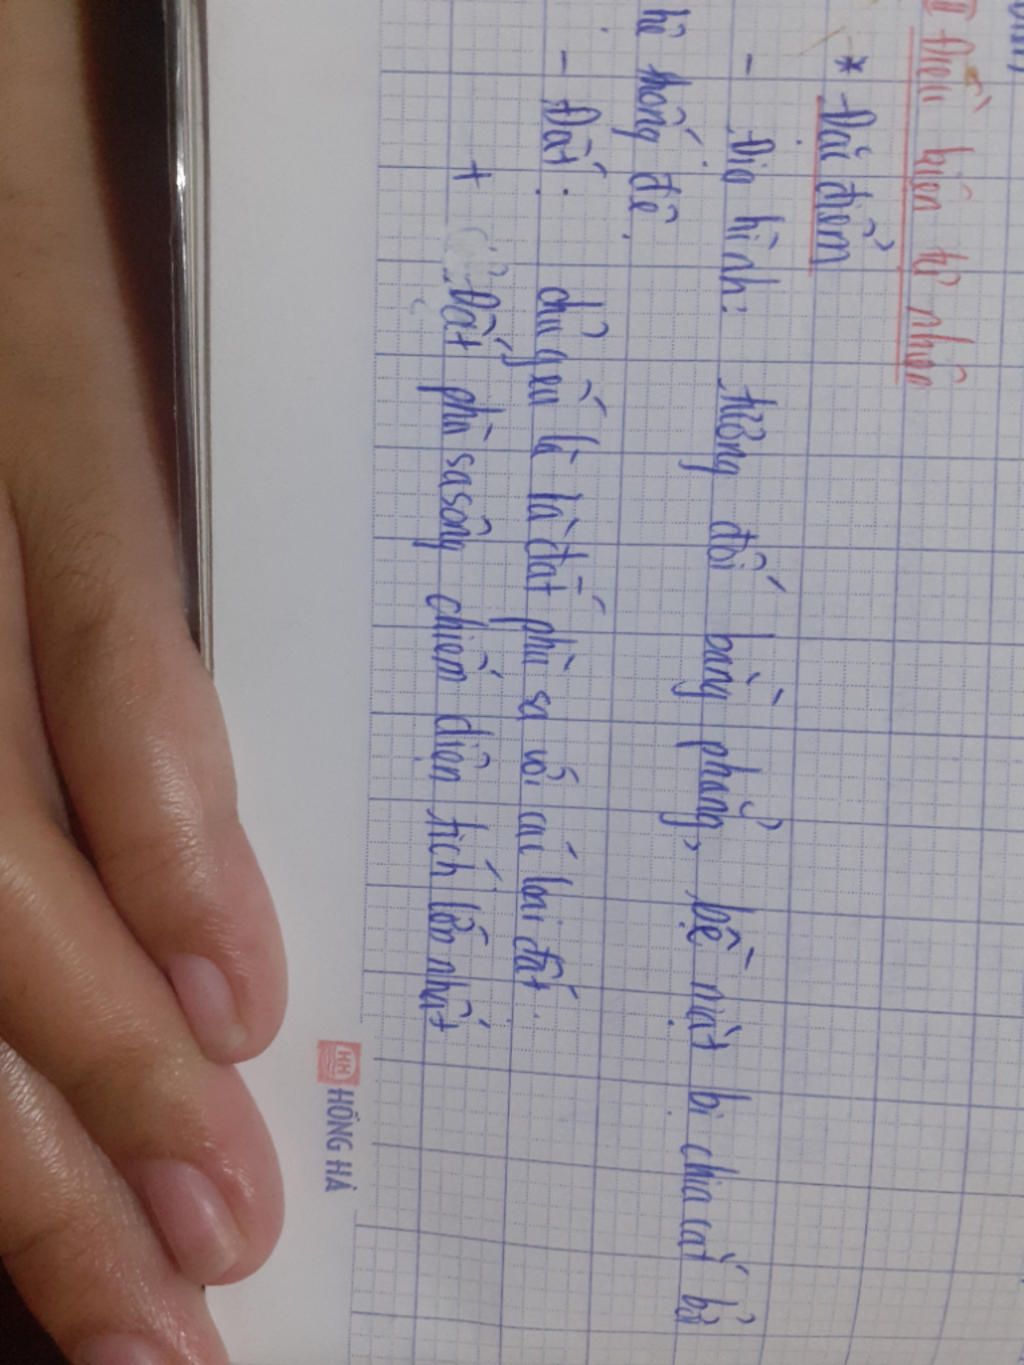 II Điều kiện tự nhiên
* Đặc điểm
- Địa hình: tương đối bằng phẳng, bề mặt bị chia cắt bởi
hệ thống đê.
- Đất: chủ yếu là là đất phù sa với các loại đất:
+ Đất phù sa sông chiếm diện tích lớn nhất
HH HỒNG HÀ